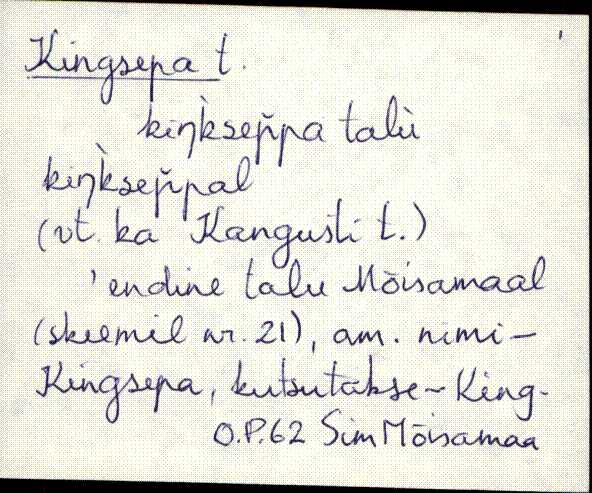 Kingsepa t.
kiŋ̀ksep̆pa talù
kiŋ̀ksep̆pal
(vt. ka Kangusti t.)
'endine talu Mõisamaal
(skeemil nr. 21), am. nimi –
Kingsepa, kutsutakse – King-
O.P.62 Sim Mõisamaa